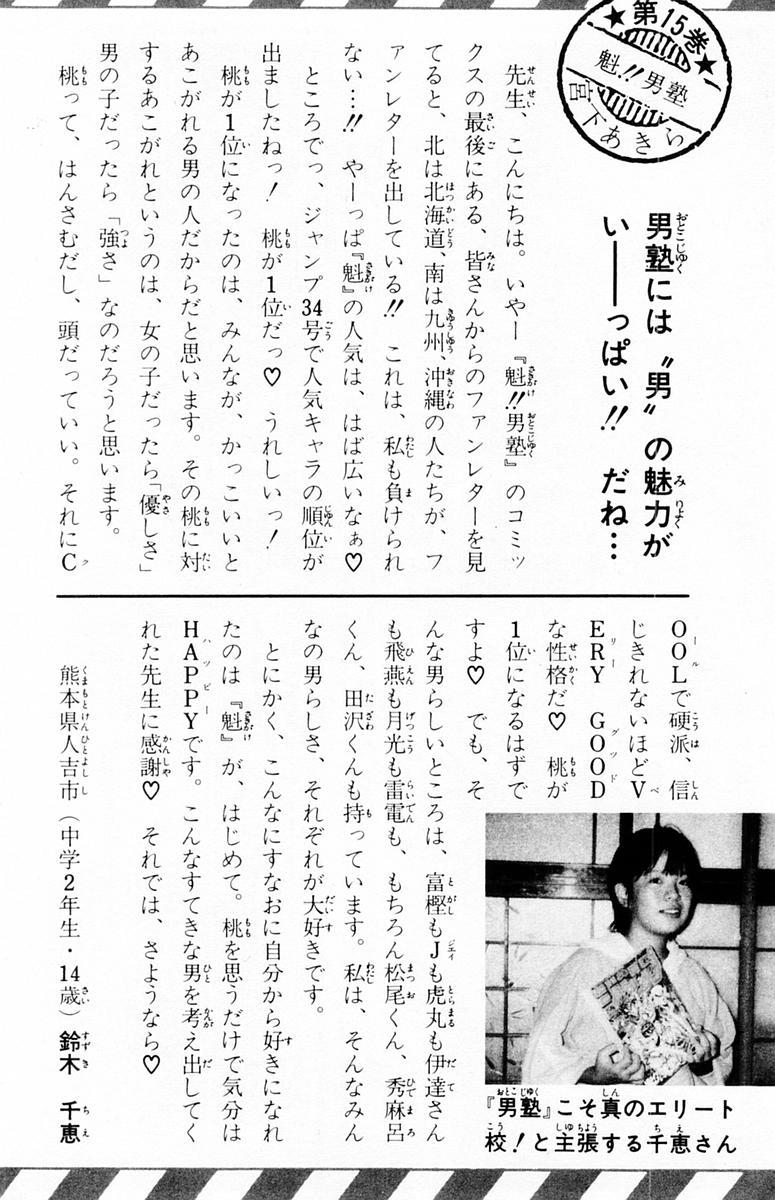 ★第15巻★
魁!!男塾
宮下あきら
男塾には〝男〟の魅力が
い――っぱい!! だね…
先生、こんにちは。いやー『魁!!男塾』のコミッ
クスの最後にある、皆さんからのファンレターを見
てると、北は北海道、南は九州、沖縄の人たちが、フ
ァンレターを出している!! これは、私も負けられ
ない…!! やーっぱ『魁』の人気は、はば広いなぁ♡
ところでっ、ジャンプ34号で人気キャラの順位が
出ましたねっ! 桃が1位だっ♡ うれしいっ!
桃が1位になったのは、みんなが、かっこいいと
あこがれる男の人だからだと思います。その桃に対
するあこがれというのは、女の子だったら「優しさ」
男の子だったら「強さ」なのだろうと思います。
桃って、はんさむだし、頭だっていい。それにC
OOLで硬派、信
じきれないほどV
ERY GOOD
な性格だ♡ 桃が
1位になるはずで
すよ♡ でも、そ
んな男らしいところは、富樫もJも虎丸も伊達さん
も飛燕も月光も雷電も、もちろん松尾くん、秀麻呂
くん、田沢くんも持っています。私は、そんなみん
なの男らしさ、それぞれが大好きです。
とにかく、こんなにすなおに自分から好きになれ
たのは『魁』が、はじめて。桃を思うだけで気分は
HAPPYです。こんなすてきな男を考え出してく
れた先生に感謝♡ それでは、さようなら♡
熊本県人吉市(中学2年生・14歳)鈴木 千恵
『男塾』こそ真のエリート
校!と主張する千恵さん